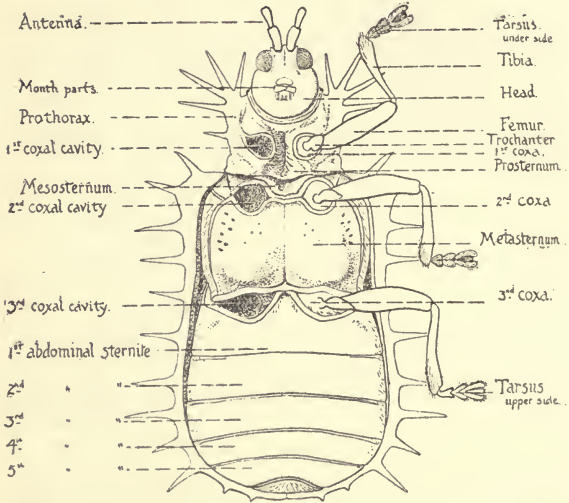 Antenna.
Mouth parts.
Prothorax.
1st coxal cavity.
Mesosternum.
2nd coxal cavity
3nd coxal cavity.
1st abdominal sternite
2nd " "
3nd " "
4th " "
5th " "
Tarsus.
under side
Tibia.
Head.
Femur.
Trochanter
1st coxa.
Prosternum.
2nd coxa
Metasternum.
3nd coxa.
Tarsus
upper side.